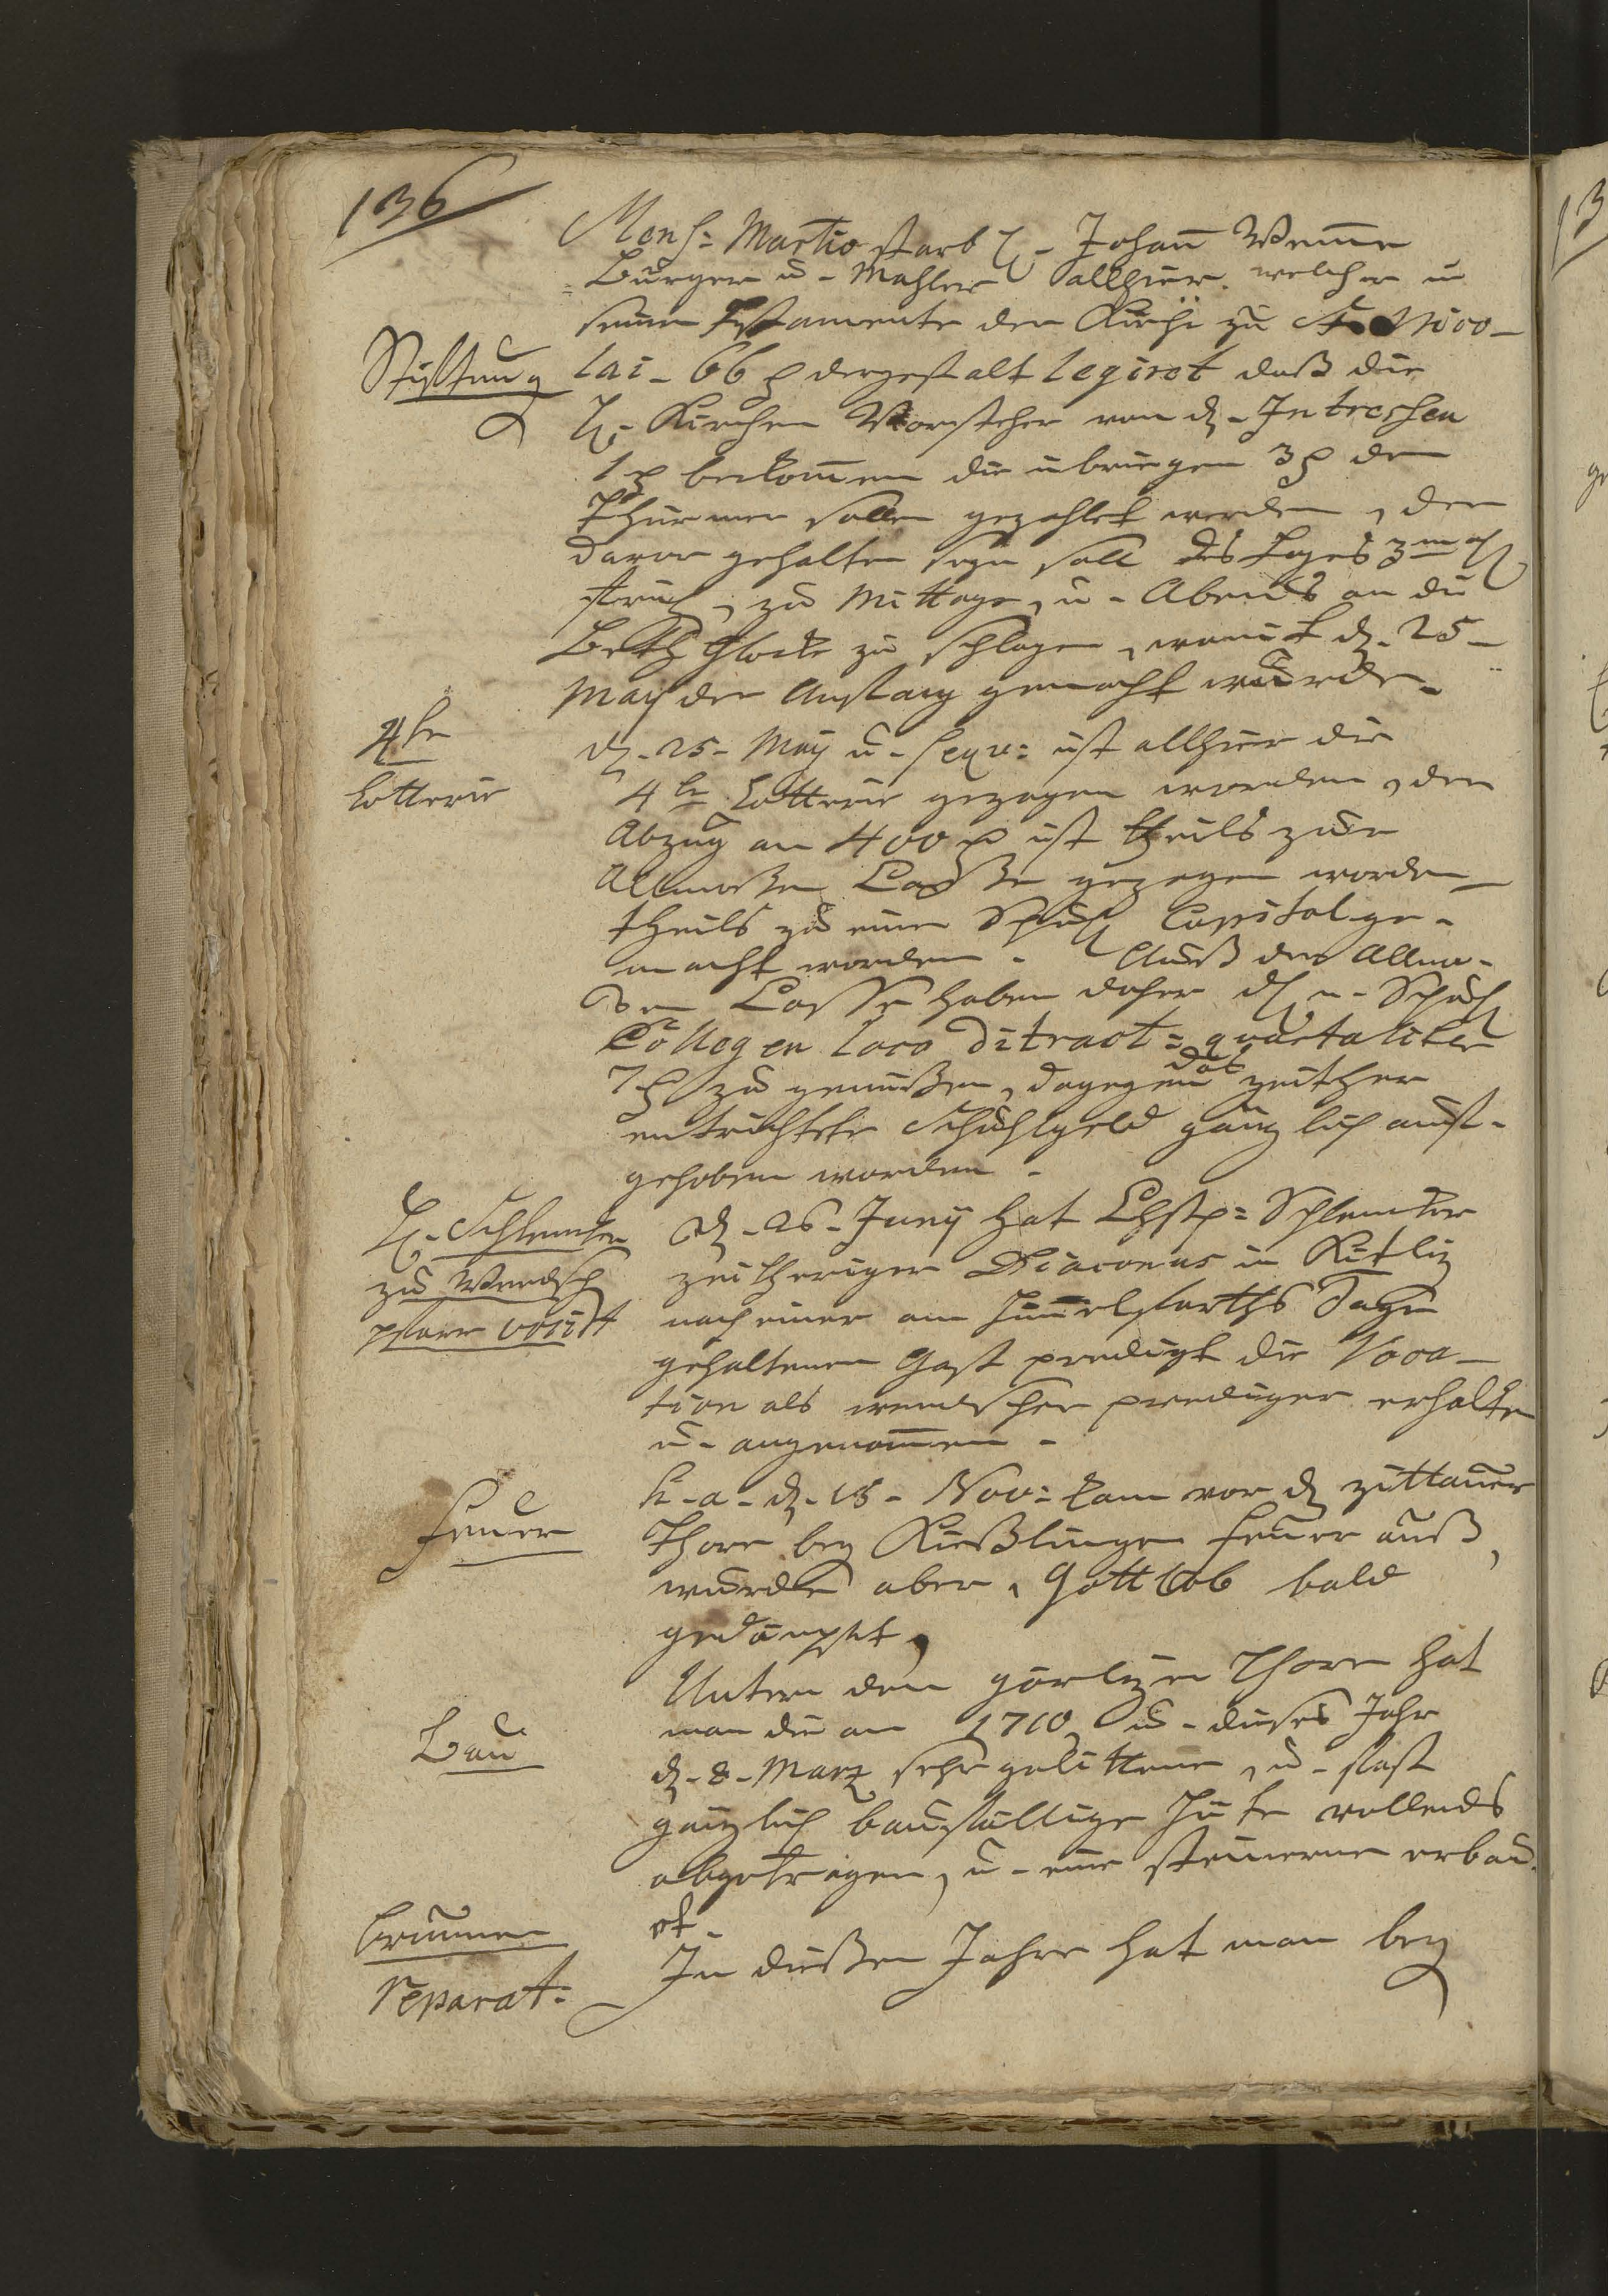 136
Mens: Martio starb H. Johañ Wenne
Burger u. Mahler allhier. welcher in
seinen Testamente der Kirche zu St. Nico-
Stifftung
lai 66 rthl dergestalt legiret daß die
H. Kirchen Vorsteher von d. Intressen
1 rthl bekom̃en die ubriegen 3 rthl dem
Thürmer sollen gezahlet werden, der
davor gehalten seyn soll des Tages 3 mahl
fruh, zu Mittage, u. Abends an die
Beth Glocke zu schlagen, womit d. 25
May der Anfang gemacht wurde.
4te
Lotterie
d. 25. May u. sequ: ist allhier die
4te Lotterie gezogen worden, der
Abzug an 400 rthl ist theils zur
Allmoßen Caße gezogen worden
theils zu einen Schuhl Capital ge-
macht worden. Auß der Allmo-
ßen Casse haben daher die n. Schuhl
Collegen loco ditract: quartaliter
7 rthl zu genüßen, dagegen das zeither
entrichtete Schuhlgeld gänzlich auf-
gehoben worden.
H. Schlenker
zu Wendsch
pfarr vocirt
d. 26. Juny hat Chstp: Schlenker
zeitheriger Diaconus in Kitliz
nach einer am Himmelfarths Tage
gehaltenen Gast predigt die Voca-
tion als wendscher prediger erhalten
u. angenom̃en.
Feuer
h. a. d. 18. Nov: kam vor d. zittauer
Thore bey Kießlingen Feuer auß,
wurde aber, Gott lob bald
gedämpfet,
Bau
Untern dem görlizer Thore hat
man die an 1710, u. dieses Jahr
d. 8. Marz sehr gelittene, u. fast
gänzlich baufällige Hüte vollends
abgetragen, u. eine steinerne erbau-
et.
Brunnen
reparat:
In dießen Jahre hat man bey